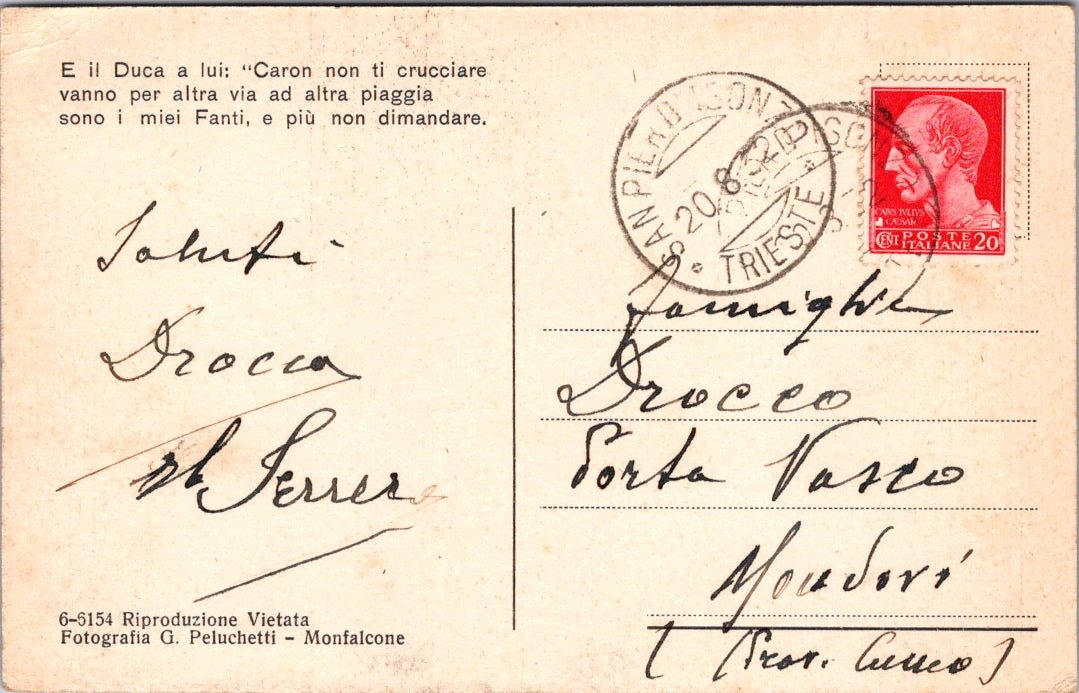 E il Duca a lui: "Caron non ti crucciare
vanno per altra via ad altra piaggia
sono i miei Fanti, e più non dimandare.
SAN PIER D'ISONZO
20.8.32
TRIESTE
CAIVS IVLIVS
CÆSAR
CENT POSTE ITALIANE 20
Saluti
Drocco
Serrer
famiglia
Drocco
Porta Vasco
Mondovi
(Prov. Cuneo)
6-6154 Riproduzione Vietata
Fotografia G. Peluchetti - Monfalcone